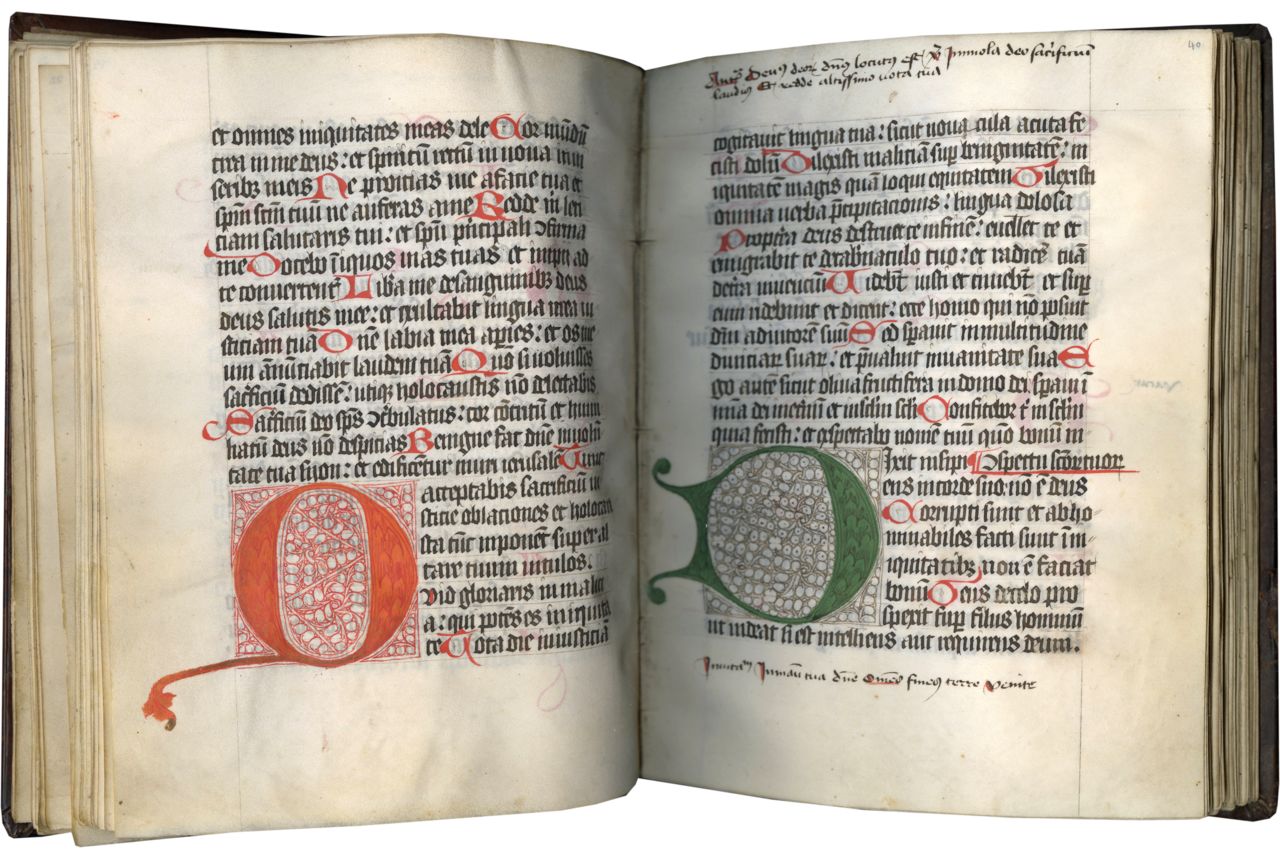 et omnes iniquitates meas dele Cor mūdū
crea in me deus: et spiritū rectū in noua in vi
scerib3 meis Ne proicias me a facie tua et
spm scm tuū ne auferas a me Redde m leti
ciam salutaris tui: et spū principali ↄfirma
me Docebo iīquos uias tuas et impii ad
te conuertent̄ Liba me de sanguinib3 deus
deus salutis mee: et exultabit lingua mea iu
sticiam tuā Dne labia mea aperies: et os me
um ānūciabit laudem tuā Qm̄ si voluisses
sacrificiū dedissē: utiq3 holocaustis nō delectabis
Sacrificiū deo sps ↄtbulatus: cor cōtritū et hum
liatū deus nō despicias Benigne fac dne in volūt
tate tua syon: et edificentur muri ierusalē Tunc
acceptabis sacrificiū iu
sticie oblationes et holocau
sta tūc imponent super al
tare tuum uitulos:
Quid gloriaris in malici
a: qui potēs es in iniquita
te Tota die iniusticiā
Ant3 Deus deor3 dns locutus est ps Immola deo sacrificium
laudis Et redde altissimo vota tua
40
cogitauit lingua tua: sicut nouacula acuta fe
cisti dolū Dilexisti maliciā sup benignitatē: in
iquitatē magis quā loqui equitatem Dilexisti
omnia uerba pcipitacionis: lingua dolosa
Propterea deus destruet te in finē: euellet te et
emigrabit te de tabernaculo tuo: et radicē tuā
de terra uiuenciū Videbt iusti et timebt et sup
eum ridebunt et dicent: ecce homo qui nō posuit
dm̄ adiutorē suū Sed sparuit in multitudine
diuiciar3 suar3: et pualuit in uanitate sua E
go autē sicut oliua fructifera in domo dei sparui ī
mīa dei mei in et̄nū et in sclm scli Confitebor t in sclm
quia fecisti: et exspectabo nomē tuū quō bonū in
Dixit insipi ↄspectu scōr tuor
ens in corde suo: nō ē deus
Corrupti sunt et abho
minabiles facti sunt in in-
iquitatib3: non ē qui faciat
bonū Deus de celo pro
spexit sup filios hominū
ut uideat si est intelligens aut requirens deum.
Inuitat3 In manu tua dne omēs fines terre venite